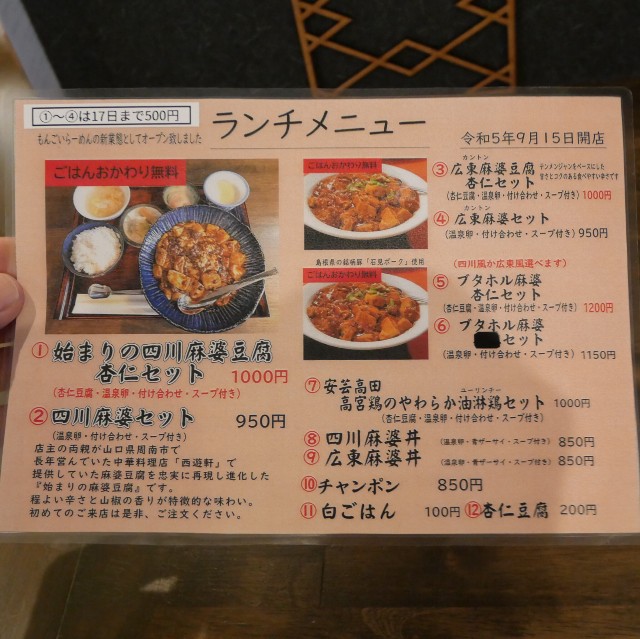 ①～④は17日まで500円
ランチメニュー
もんごいらーめんの新業態としてオープン致しました
令和5年9月15日開店
ごはんおかわり無料
① 始まりの四川麻婆豆腐
杏仁セット 1000円
(杏仁豆腐・温泉卵・付け合わせ・スープ付き)
② 四川麻婆セット 950円
(温泉卵・付け合わせ・スープ付き)
店主の両親が山口県周南市で
長年営んでいた中華料理店「西遊軒」で
提供していた麻婆豆腐を忠実に再現し進化した
『始まりの麻婆豆腐』です。
程よい辛さと山椒の香りが特徴的な味わい。
初めてのご来店は是非、ご注文ください。
ごはんおかわり無料
カントン
③ 広東麻婆豆腐
杏仁セット
テンメンジャンをベースにした
甘さとコクのある食べやすい辛さです
(杏仁豆腐・温泉卵・付け合わせ・スープ付き) 1000円
カントン
④ 広東麻婆セット
(温泉卵・付け合わせ・スープ付き) 950円
島根県の銘柄豚「石見ポーク」使用
ごはんおかわり無料
(四川風か広東風選べます)
⑤ ブタホル麻婆
杏仁セット
(杏仁豆腐・温泉卵・付け合わせ・スープ付き) 1200円
⑥ ブタホル麻婆
セット
(温泉卵・付け合わせ・スープ付き) 1150円
⑦ 安芸高田
ユーリンチー
高宮鶏のやわらか油淋鶏セット 1000円
(杏仁豆腐・温泉卵・付け合わせ・スープ付き)
⑧ 四川麻婆丼 (温泉卵・青ザーサイ・スープ付き) 850円
⑨ 広東麻婆丼 (温泉卵・青ザーサイ・スープ付き) 850円
⑩ チャンポン 850円
⑪ 白ごはん 100円 ⑫ 杏仁豆腐 200円